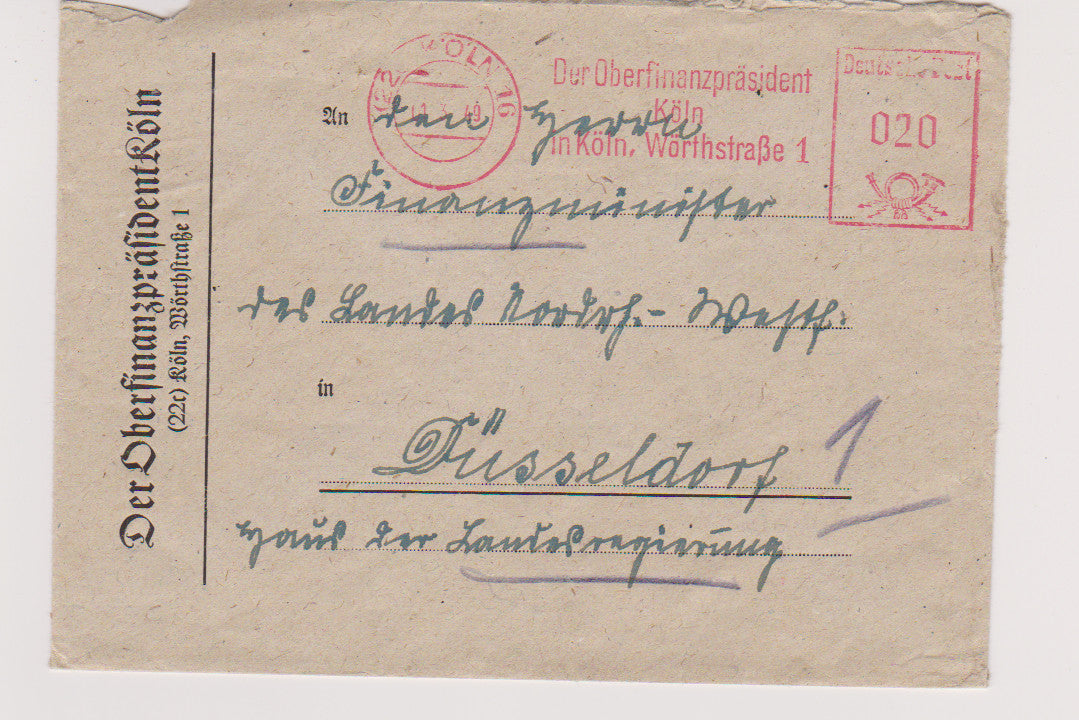 Der Oberfinanzpräsident Köln
(22c) Köln, Wörthstraße 1
KÖLN 16
Der Oberfinanzpräsident
Köln
in Köln, Wörthstraße 1
Deutsche Post
020
An den Herrn
Finanzminister
des Landes Nordrh.- Westf.
in
Düsseldorf 1
Haus der Landesregierung